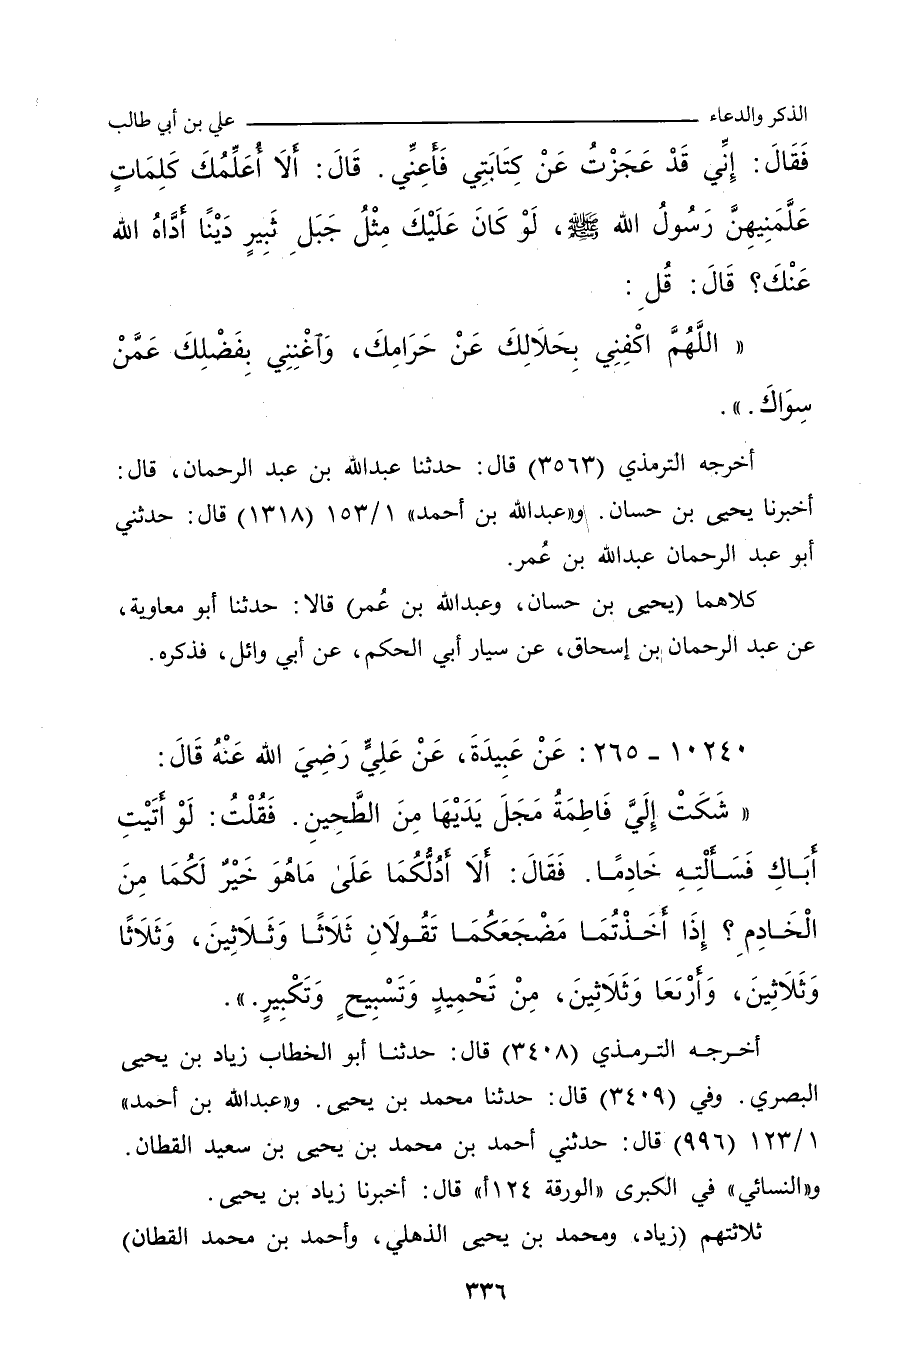 الذكر والدعاء ـــــــــــــــــــــــــــ علي بن أبي طالب
فَقَالَ: إِنِّي قَدْ عَجَزْتُ عَنْ كِتَابَتِي فَأَعِنِّي. قَالَ: أَلَا أُعَلِّمُكَ كَلِمَاتٍ
عَلَّمَنِيهِنَّ رَسُولُ الله ﷺ، لَوْ كَانَ عَلَيْكَ مِثْلُ جَبَلِ ثَبِيرٍ دَيْنًا أَدَّاهُ الله
عَنْكَ؟ قَالَ: قُلِ:
« اللَّهُمَّ اكْفِنِي بِحَلَالِكَ عَنْ حَرَامِكَ، وَآغْنِنِي بِفَضْلِكَ عَمَّنْ
سِوَاكَ.».
أخرجه الترمذي (٣٥٦٣) قال: حدثنا عبدالله بن عبد الرحمان، قال:
أخبرنا يحيى بن حسان. و«عبدالله بن أحمد» ١٥٣/١ (١٣١٨) قال: حدثني
أبو عبد الرحمان عبدالله بن عُمر.
كلاهما (يحيى بن حسان، وعبدالله بن عُمر) قالا: حدثنا أبو معاوية،
عن عبد الرحمان بن إسحاق، عن سيار أبي الحكم، عن أبي وائل، فذكره.
١٠٢٤٠ ـ ٢٦٥: عَنْ عَبِيدَةَ، عَنْ عَلِيٍّ رَضِيَ الله عَنْهُ قَالَ:
« شَكَتْ إِلَيَّ فَاطِمَةُ مَجَلَ يَدَيْهَا مِنَ الطَّحِينِ. فَقُلْتُ: لَوْ أَتَيْتِ
أَبَاكِ فَسَأَلْتِهِ خَادِمًا. فَقَالَ: أَلَا أَدُلُّكُمَا عَلَىٰ مَاهُوَ خَيْرٌ لَكُمَا مِنَ
الْخَادِمِ؟ إِذَا أَخَذْتُمَا مَضْجَعَكُمَا تَقُولَانِ ثَلَاثًا وَثَلَاثِينَ، وَثَلَاثًا
وَثَلَاثِينَ، وَأَرْبَعَا وَثَلَاثِينَ، مِنْ تَحْمِيدٍ وَتَسْبِيحٍ وَتَكْبِيرٍ.».
أخرجه الترمذي (٣٤٠٨) قال: حدثنا أبو الخطاب زياد بن يحيى
البصري. وفي (٣٤٠٩) قال: حدثنا محمد بن يحيى. و«عبدالله بن أحمد»
١٢٣/١ (٩٩٦) قال: حدثني أحمد بن محمد بن يحيى بن سعيد القطان.
و«النسائي» في الكبرى «الورقة ١٢٤أ» قال: أخبرنا زياد بن يحيى.
ثلاثتهم (زياد، ومحمد بن يحيى الذهلي، وأحمد بن محمد القطان)
٣٣٦